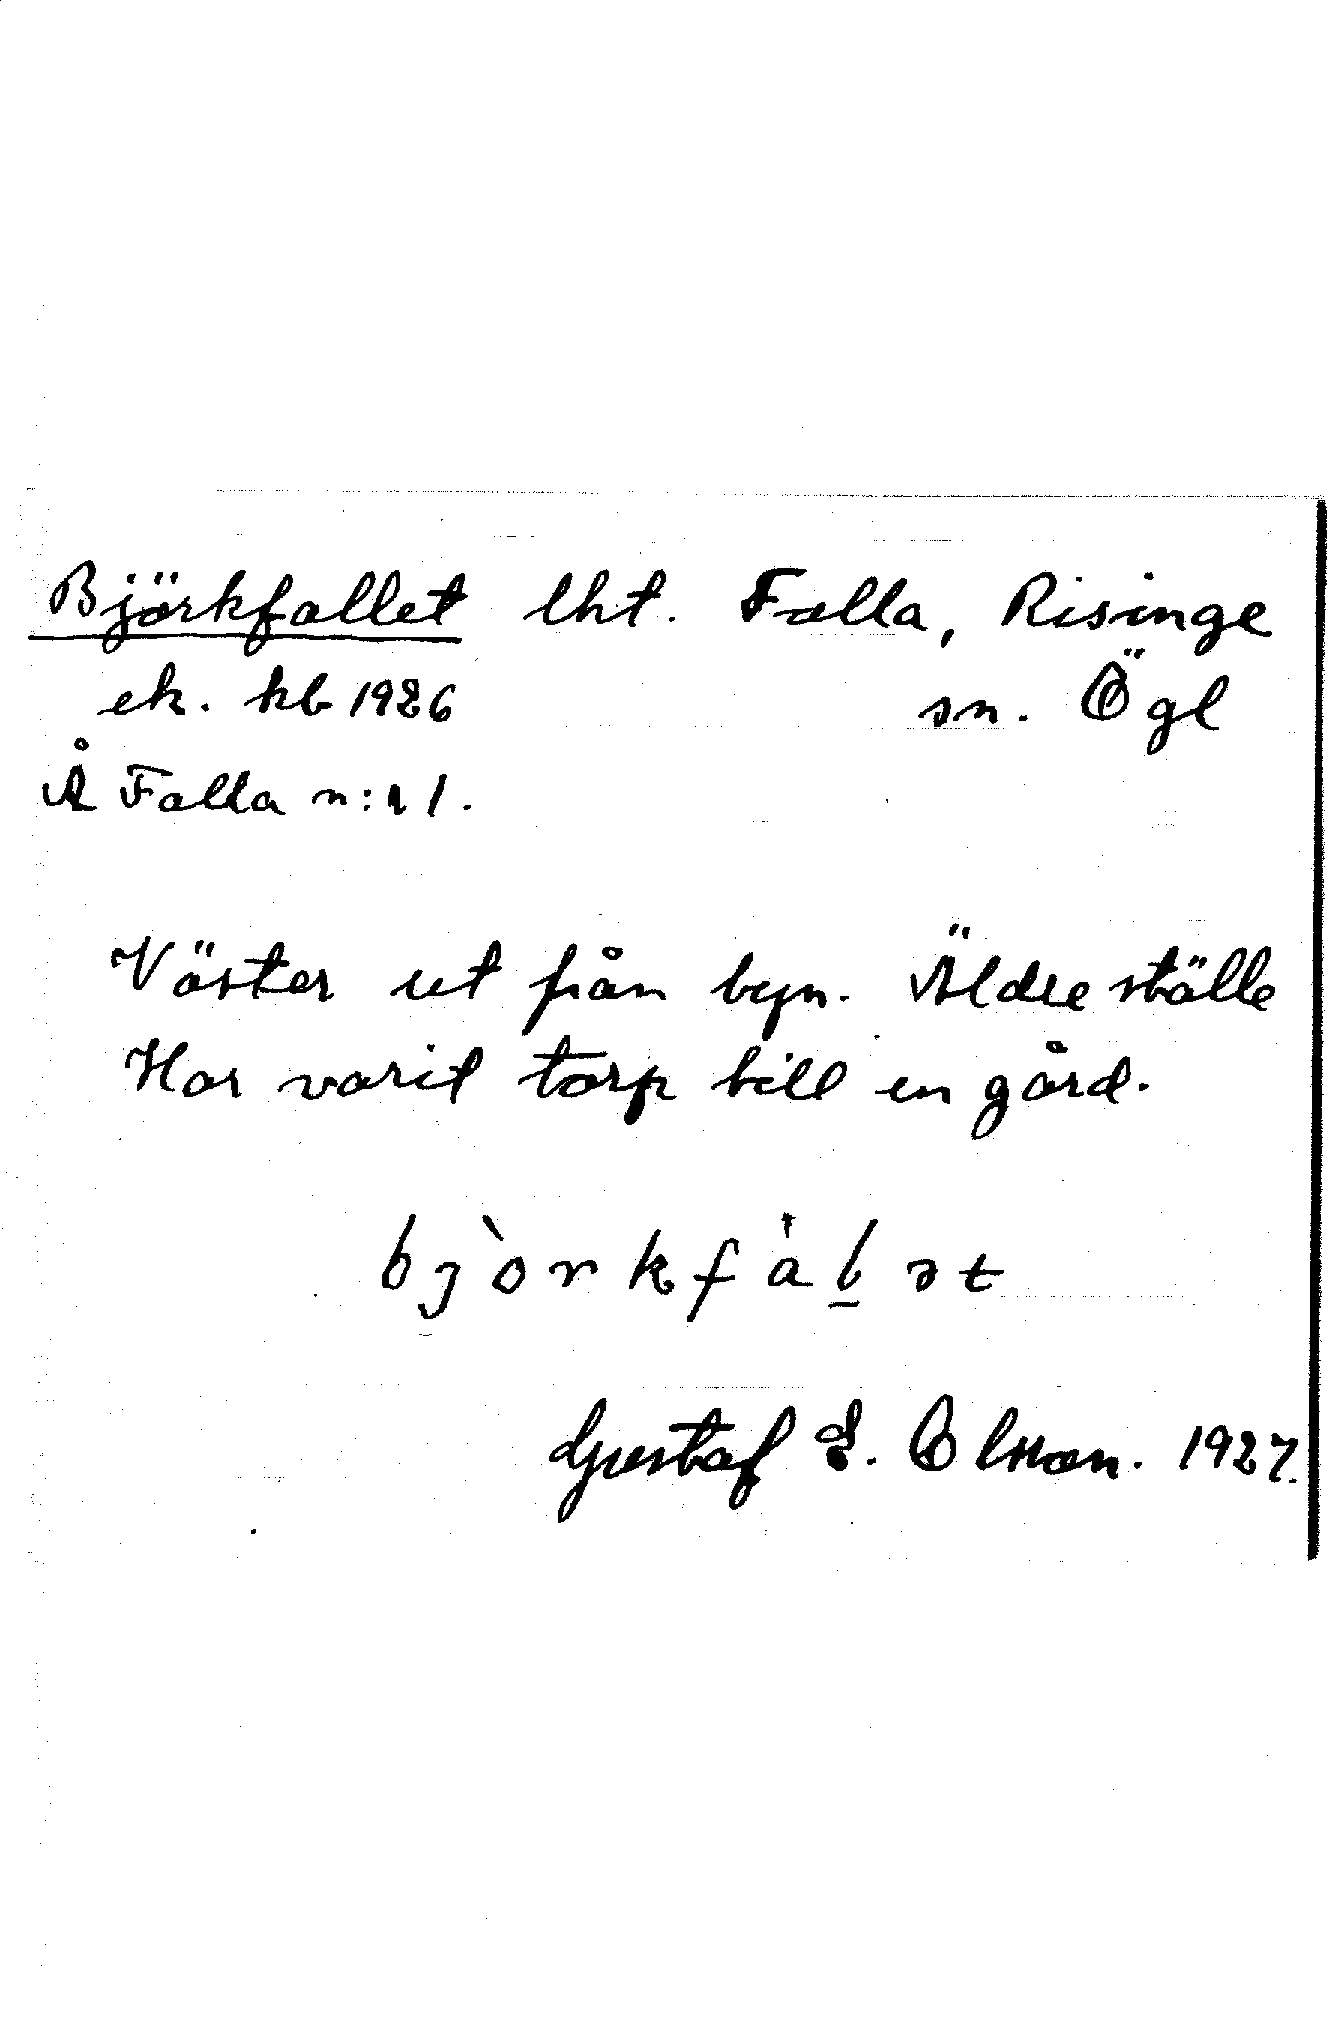 Björkfallet lht. Falla, Risinge
ek. kb 1926 sn. Ögl
Å Falla n:r 1.
Väster ut från byn. Äldre ställe
Har varit torp till en gård.
bjòrkfàl̠ət
Gustaf E. Olsson. 1927.